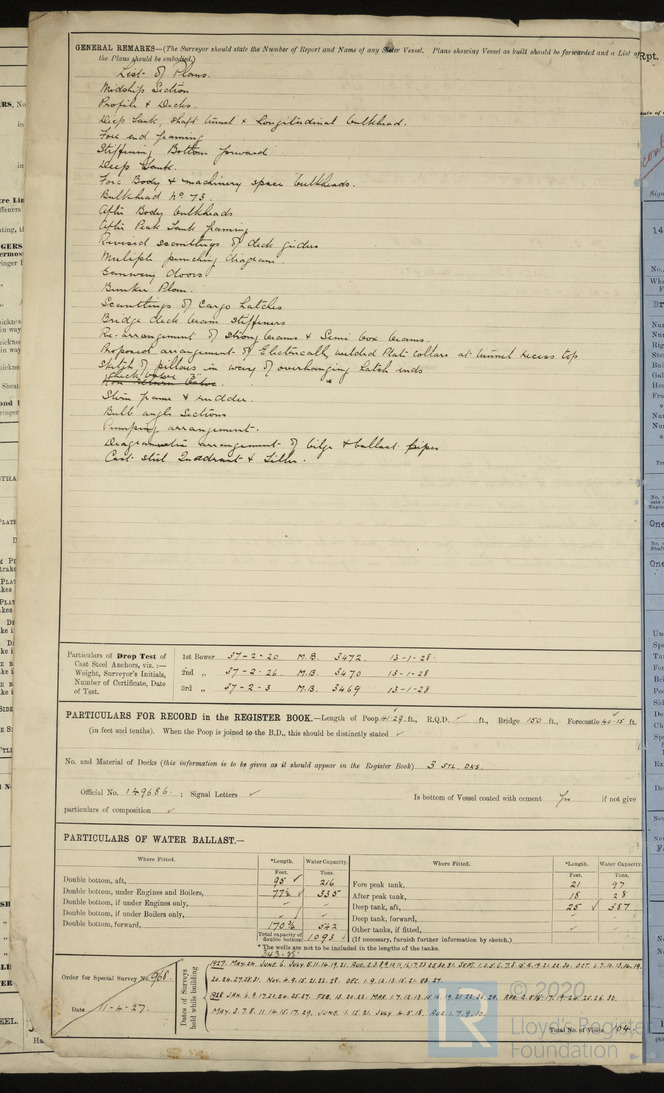 GENERAL REMARKS—(The Surveyor should state the Number of Report and Name of any Sister Vessel. Plans showing Vessel as built should be forwarded and a List of
the Plans should be embodied.)
List of Plans.
Midship Section
Profile & Decks.
Deep Tank, Shaft tunnel & Longitudinal bulkhead.
Fore end framing
Stiffening Bottom forward
Deep Tank.
Fore Body & machinery space bulkheads.
Bulkhead No 73.
After Body bulkheads
After Peak Tank framing
Revised scantlings of deck girders
Multiple punching diagram.
Gangway doors.
Bunker Plan.
Scantlings of Cargo hatches
Bridge deck beam stiffeners
Re-arrangement of strong beams & Semi box beams.
Proposed arrangement of Electrically welded Plate collars at tunnel recess top
Sketch of pillars in way of overhanging hatch ends
Stern frame & rudder.
Bulb angle sections
Pumping arrangement.
Diagrammatic arrangement of bilge & ballast pipes
Cast steel Quadrant & Tiller.
Particulars of Drop Test of
Cast Steel Anchors, viz.:—
Weight, Surveyor's Initials,
Number of Certificate, Date
of Test.
1st Bower 37-2-20 M.B. 3472. 13-1-28
2nd „ 37-2-26. M.B. 3470 13-1-28
3rd „ 37-2-3 M.B. 3469 13-1-28
PARTICULARS FOR RECORD in the REGISTER BOOK.—Length of Poop 41.29 ft., R.Q.D. ✓ ft., Bridge 150 ft., Forecastle 40.15 ft.
(in feet and tenths). When the Poop is joined to the B.D., this should be distinctly stated ✓
No. and Material of Decks (this information is to be given as it should appear in the Register Book) 3 STL. DKS.
Official No. 149686. ; Signal Letters ✓ Is bottom of Vessel coated with cement Yes if not give
particulars of composition ✓
PARTICULARS OF WATER BALLAST.—
Where Fitted. *Length. Water Capacity. Where Fitted. *Length. Water Capacity.
Feet. Tons. Feet. Tons.
Double bottom, aft, 95 ✓ 216 Fore peak tank, 21 97
Double bottom, under Engines and Boilers, 77½ ✓ 335 After peak tank, 18 28
Double bottom, if under Engines only, Deep tank, aft, 25 ✓ 587
Double bottom, if under Boilers only, Deep tank, forward,
Double bottom, forward, 170¾ 542 Other tanks, if fitted, ✓
Total capacity of double bottom 1093 (If necessary, furnish further information by sketch.)
* The wells are not to be included in the lengths of the tanks.
Order for Special Survey No. 968.
Date 11-4-27.
Dates of Surveys held while building
1927. MAY. 24. JUNE 6. JULY 5.11.14.19.21. AUG.
1928 JAN. 6.9.17.21.24.25.27. FEB.
MAY. 3.7.8. 11.14.15.17.29. JUNE. 1.12.21. JULY 4.5.18. AUG. 1.7.9.10.
Total No. of Visits 104.
© 2020
Lloyd's Register
Foundation
LR